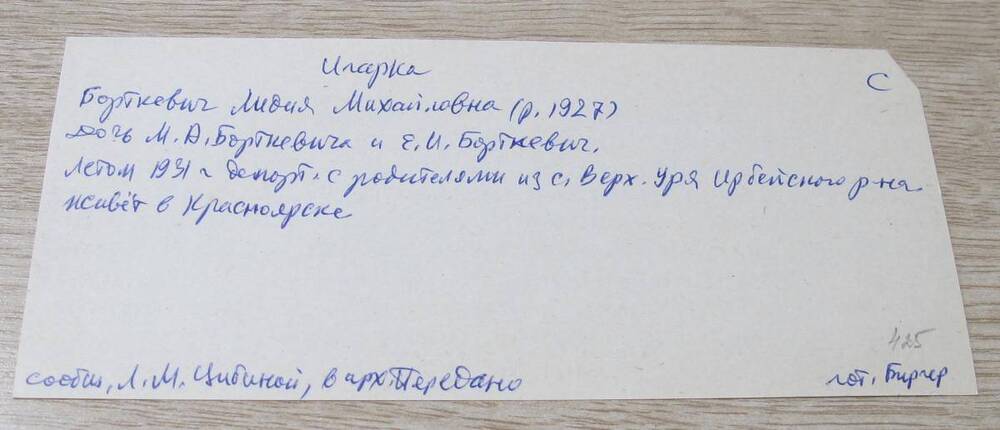 Игарка
С
Борткевич Лидия Михайловна (р. 1927)
дочь М.А. Борткевича и Е.И. Борткевич.
Летом 1931 г депорт. с родителями из с. Верх. Уря Ирбейского р-на.
живёт в Красноярске
425
сообщ, Л.М. Цибиной, в арх. Передано
гот. Биргер